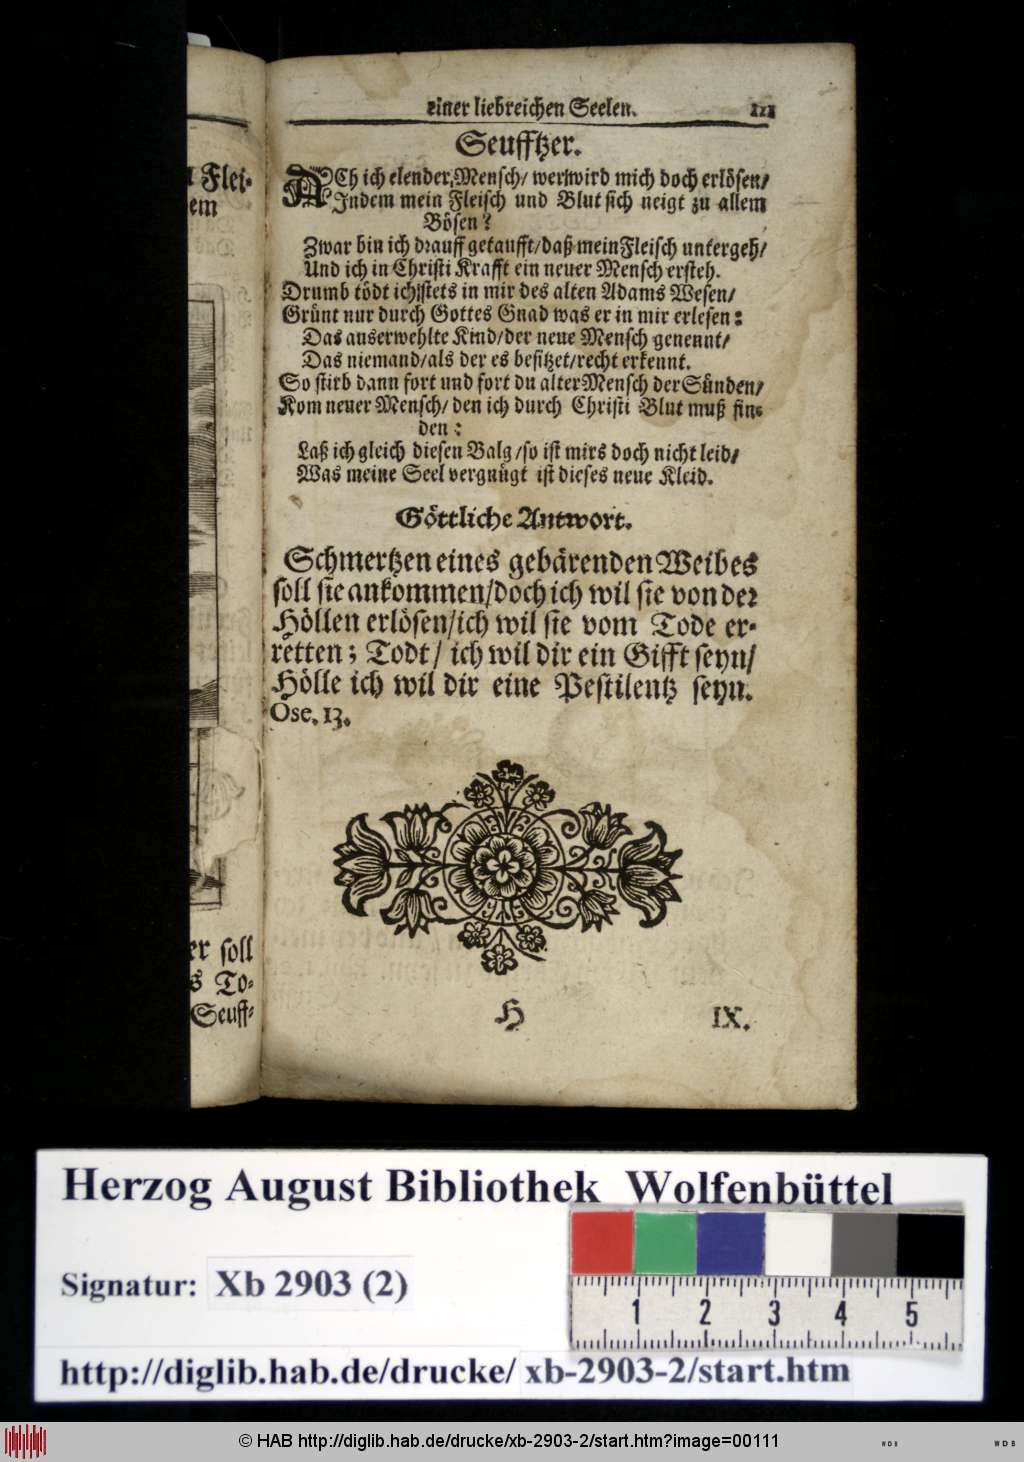 n Flei-
em
er soll
s To-
Seuff-
einer liebreichen Seelen. 111
Seufftzer.
ACh ich elender Mensch/ wer wird mich doch erlösen/
Indem mein Fleisch und Blut sich neigt zu allem
Bösen?
Zwar bin ich drauff getaufft/ daß mein Fleisch untergeh/
Und ich in Christi Krafft ein neuer Mensch ersteh.
Drumb tödt ich stets in mir des alten Adams Wesen/
Grünt nur durch Gottes Gnad was er in mir erlesen:
Das auserwehlte Kind/ der neue Mensch genennt/
Das niemand/ als der es besitzet/ recht erkennt.
So stirb dann fort und fort du alter Mensch der Sünden/
Kom neuer Mensch/ den ich durch Christi Blut muß fin-
den:
Laß ich gleich diesen Balg/ so ist mirs doch nicht leid/
Was meine Seel vergnügt ist dieses neue Kleid.
Göttliche Antwort.
Schmertzen eines gebärenden Weibes
soll sie ankommen/ doch ich wil sie von der
Höllen erlösen/ ich wil sie vom Tode er-
retten; Todt/ ich wil dir ein Gifft seyn/
Hölle ich wil dir eine Pestilentz seyn.
Ose. 13.
H IX.
Herzog August Bibliothek Wolfenbüttel
Signatur: Xb 2903 (2)
1 2 3 4 5
http://diglib.hab.de/drucke/ xb-2903-2/start.htm
© HAB http://diglib.hab.de/drucke/xb-2903-2/start.htm?image=00111
WDB WDB